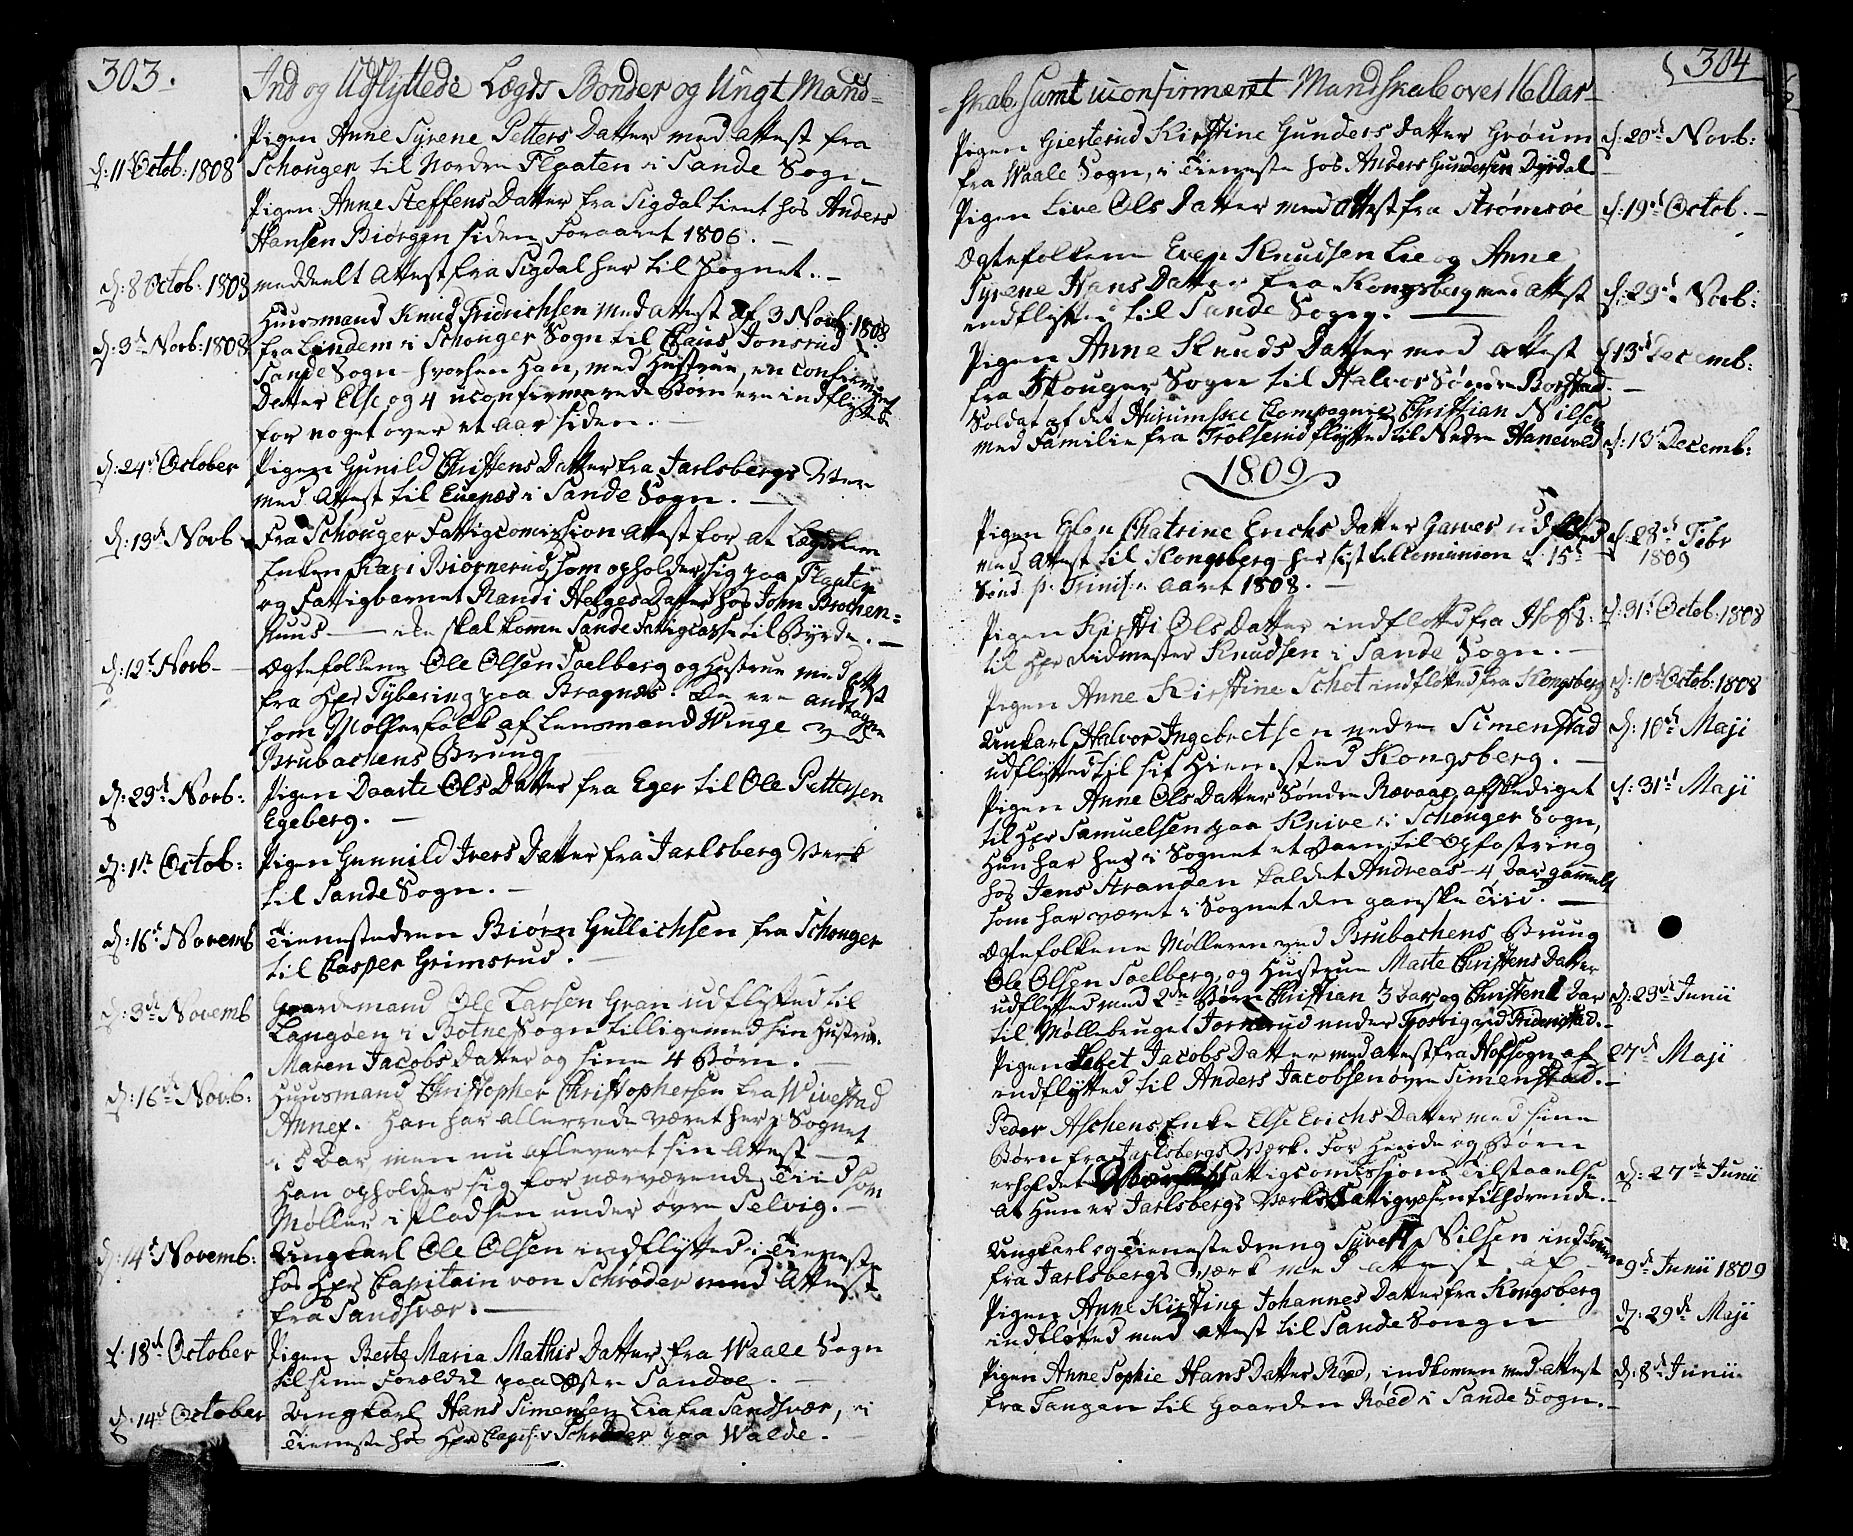 303.
Ind og Udflyttede Lægds Bønder og Ungt Mand=
Pigen Anne Syrene Petters Datter med attest fra
d: 11 Octob: 1808 Schouger til Nordre Flaaten i Sande Sogn
Pigen Anne Steffens Datter fra Sigdal tient hos Anders
Hansen Biørgen siden Foraaret 1806. –
d: 8 Octob: 1808 meddeelt Attest fra Sigdal her til Sognet. –
Huusmand Knud Fridrichsen med attest af 3 Novb: 1808
d: 3d Novb: 1808 fra Lindem i Schouger Sogn til Claus Jonsrud i
Sande Sogn – hvorhen han, med Hustrue, en confirmeret
Datter Else og 4 uconfirmerede Børn ere indflyttede
for noget over et aar siden. –
d: 24d October Pigen Gunild Christens Datter fra Jarlsbergs Verk
med attest til Euenæs i Sande Sogn. –
d: 13d Novb Fra Schouger Fattigcomission attest for at
Enken Kari Biørnerud som opholder sig paa Flaaten
og Fattigbarnet Randi Helges Datter hos John Brochen=
Huus – ikke skal komme Sande Fattigcasse til Byrde. –
d: 12t Novb – Ægtefolkene Ole Olsen Soelberg og Hustrue med attest
fra Hr Tybering paa Bragnæs. De ere andtagne
som Møllerfolk af Lensmand Winge ved
Brubachens Brung
d: 29d Novb: Pigen Daarte Ols Datter fra Eger til Ole Pettersen
Egeberg. –
d: 1st Octob: Pigen Gunnild Ivers Datter fra Jarlsberg Verk
til Sande Sogn. –
d: 16t Novemb Tienestedren Biørn Gullichsen fra Schouger
til Casper Grimsrud. –
d: 3d Novemb Gaardemand Ole Larsen Gran udflytted til
Langøen i Botne Sogn tilligemed sin Hustrue
Maren Jacobs Datter og sine 4 Børn. –
d: 16d Novb: Huusmand Christopher Christophersen fra Wivestad
Annex. Han har allerrede været her i Sognet
i 5 Aar men nu aflevert sin Attest –
Han opholder sig for nærværende Tiid som
Møller i Pladsen under øvre Selvig. –
d: 14t Novemb: Ungkarl Ole Olsen indflytted i Tieneste
hos Hr Capitain von Schrøder med Attest
fra Sandsvær. –
d: 18d October Pigen Berte Maria Mathis Datter fra Waale Sogn
til sine Forældre paa Østre Sandøe. –
d: 14d October Ungkarl Hans Simensen Lia fra Sandsvær, i
Tieneste hos Hr Capit: v Schrøder paa Walde. –
304
–skab, samt uconfirmeret Mandskab over 16 Aar –
Pigen Giesterud Kirstine Gunders Datter Grøum d: 20d Novb:
fra Waale Sogn, i Tieneste hos Anders Gundersen Dyrdal
Pigen Live Ols Datter med Attest fra Strømsøe d: 19d Octob. –
Ægtefolkene Even Knudsen Lie og Anne
Syrene Hans Datter fra Kongsberg med attest d: 29d Novb:
indflytted til Sande Sogn. –
Pigen Anne Knuds Datter med attest d: 13d Decemb:
fra Skouger Sogn til Halvor Søndre Borgstad. –
Soldat af det Hurumske Compagnie Christian Nilsen
med Familie fra Trolserud flytted til Nedre Hanevold d: 13d Decemb:
1809
Pigen Ellen Chatrine Erichs Datter Garver udflytted d: 28d Febr
med attest til Kongsberg her sidst til Comunion d. 15t 1809
Sønd. p. Trinit: aaret 1808. –
Pigen Kirsti Ols Datter indflotted fra Hofs: d: 31t Octob: 1808
til Hr Ridmester Knudsen i Sande Sogn. –
Pigen Anne Kirstine Schot indflotted fra Kongsberg d: 10d Octob: 1808
Unkarl Halvor Ingebretsen nedre Simenstad d: 10d Maji
udflytted til sit Hiemsted Kongsberg. –
Pigen Anne Ols Datter Søndre Revaae, afskediget d: 31t Maji
til Hr Samuelsen paa Knive i Schouger Sogn,
Hun har her i Sognet et Barn til Opfostring
hos Jens Stranden kaldet Andreas – 4 Aar gammelt
som har været i Sognet den ganske Tiid. –
Ægtefolkene Mølleren ved Brubachens Brung
Ole Olsen Soelberg, og Hustrue Marte Christens Datter
udflytted med 2de Børn Christian 3 Aar og Christen 1 Aar d: 23d Junii
til Møllebruget under ved Friderichstad. –
Pigen Jacobs Datter med attest fra Hofsogn af 27d Maji
indflytted til Anders Jacobsen øvre Simenstad. –
Peder Aschens Enke Else Erichs Datter med sine
Børn fra Jarlsbergs Værk. For hende og Børn
erholdet Fattigcomissions Tilstaaelse d: 27de Junii
at Hun er Jarlsbergs Værks Fattigvæsen tilhørende. –
Ungkarl og Tienestedreng Syvert Nilsen indkommen
fra Jarlsbergs Værk med attest af – 9d Junii 1809
Pigen Anne Kirstine Johannes Datter fra Kongsberg
indflytted med attest til Sande Songn d: 29d Maji
Pigen Anne Sophie Hans Datter Røed, indkomen med attest d: 8d Junii
fra Tangen til Gaarden Røed i Sande Sogn. –